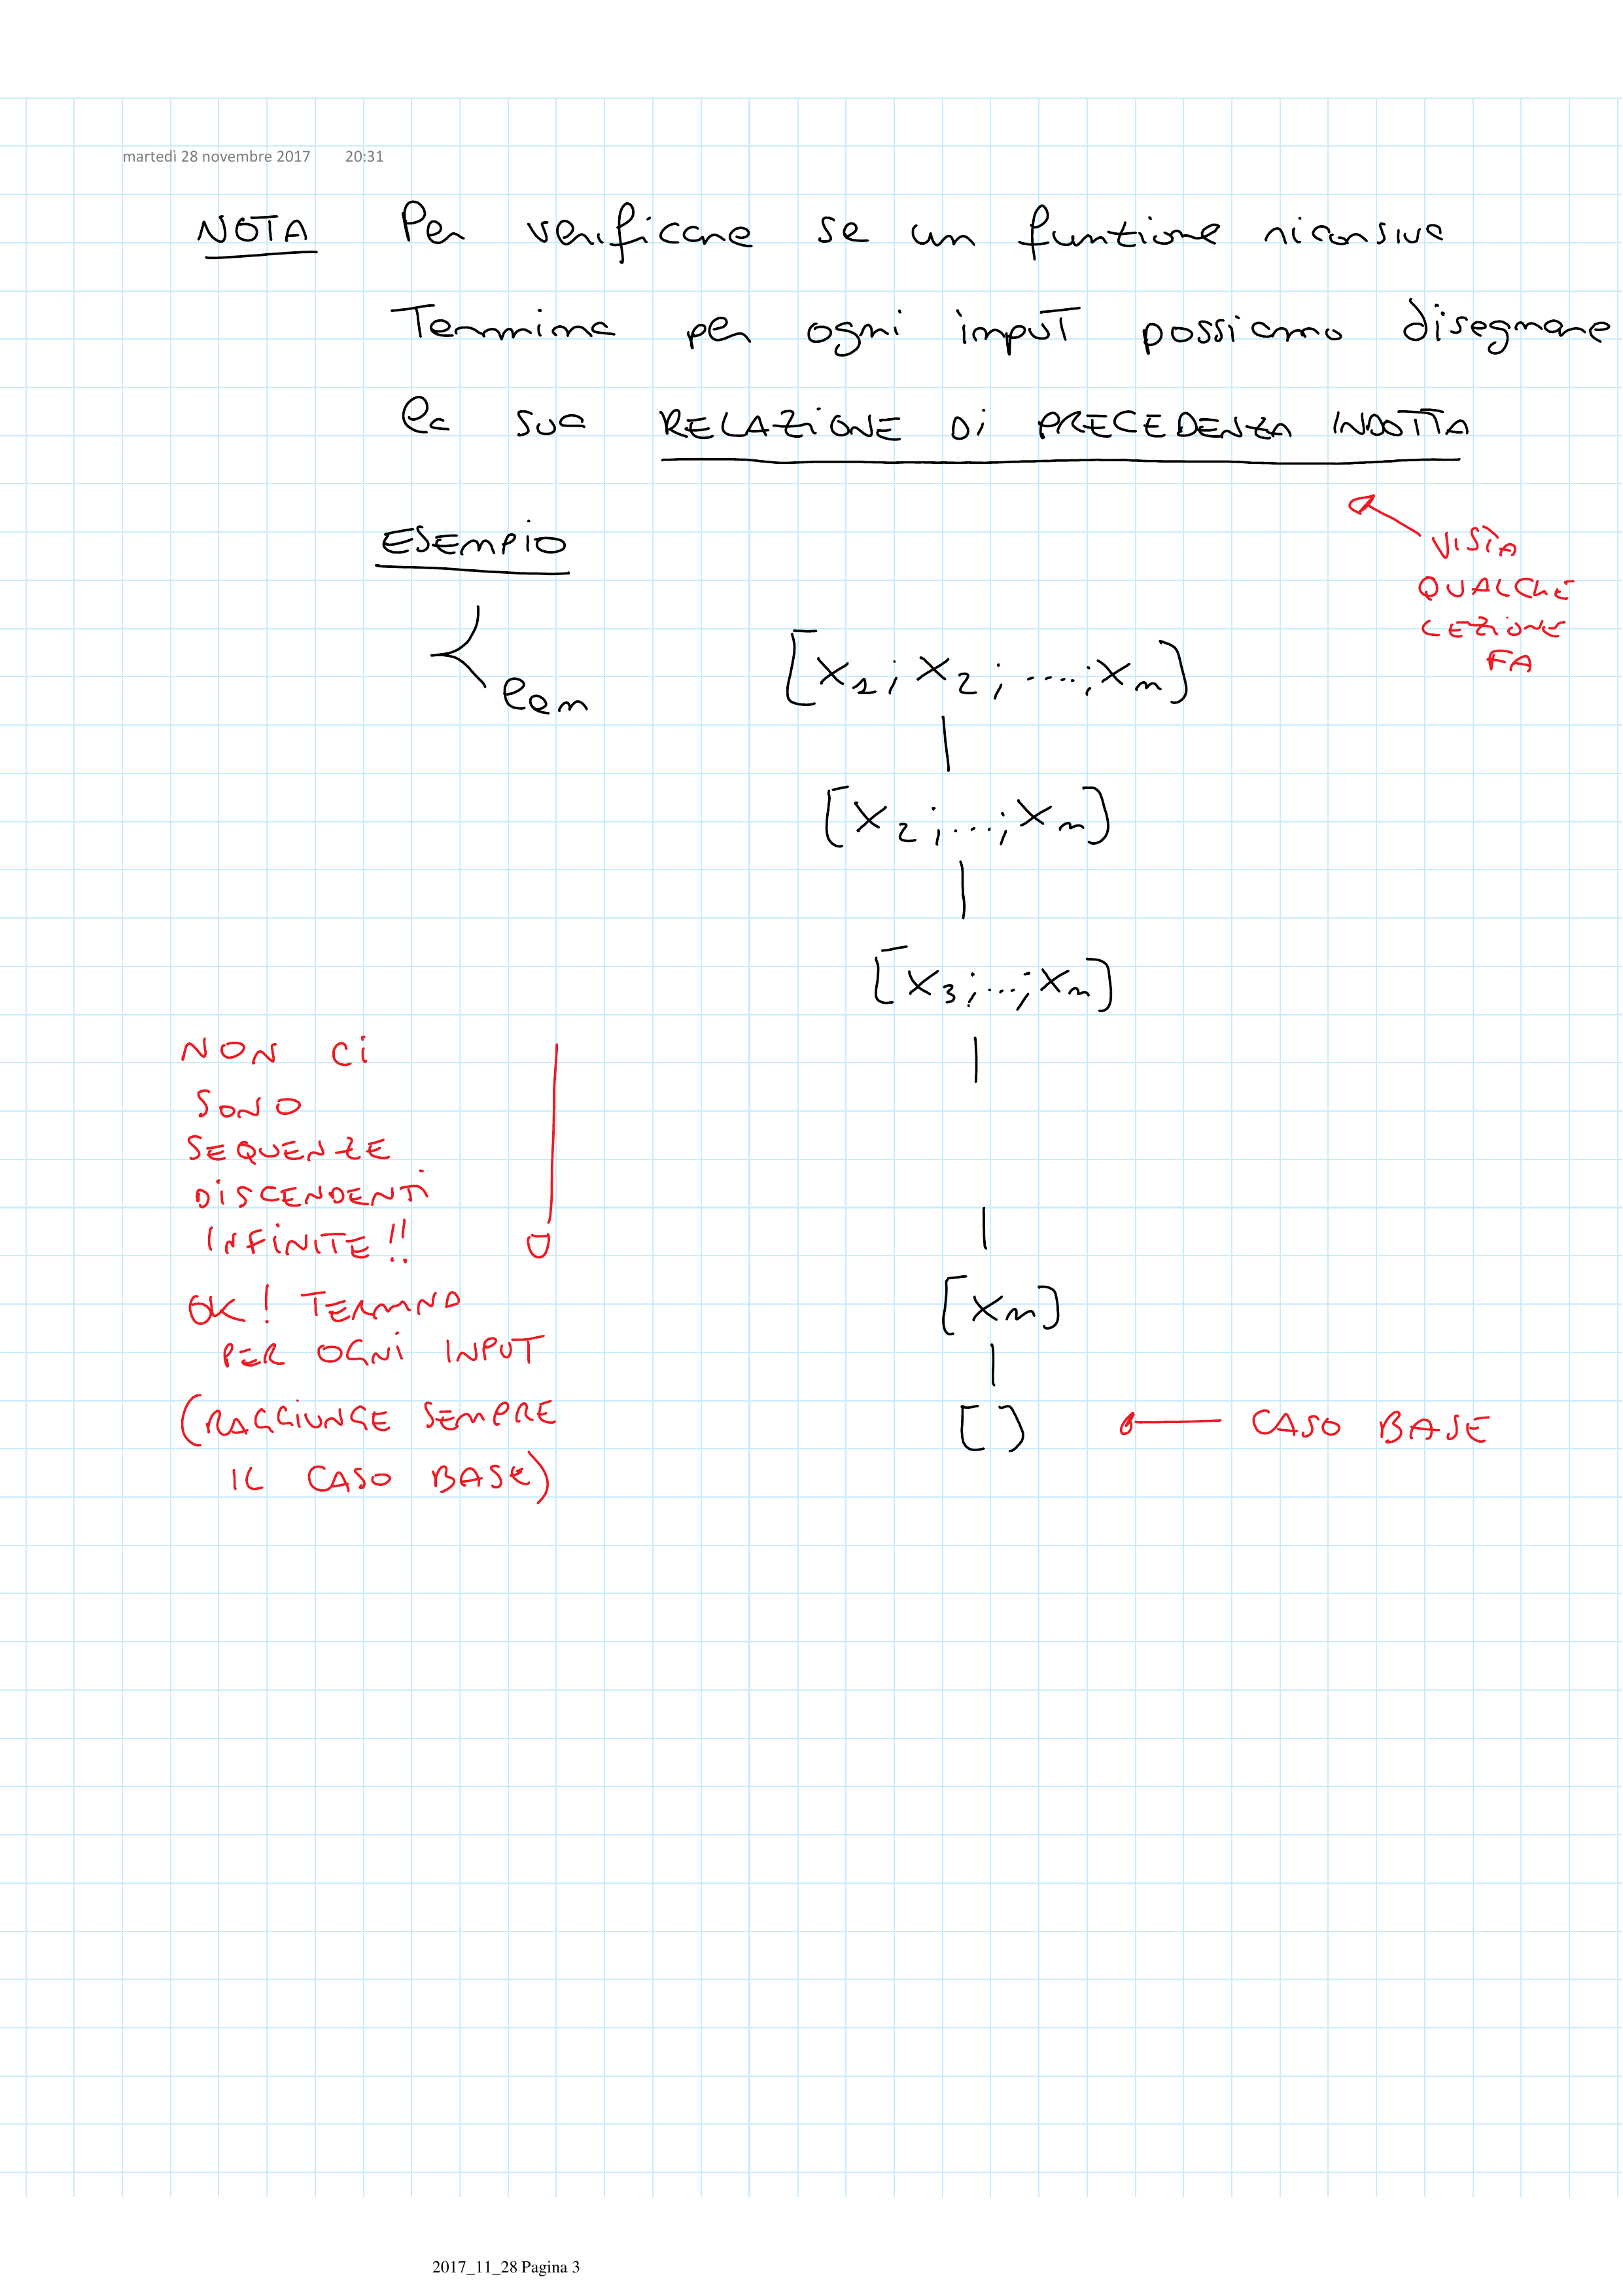 martedì 28 novembre 2017 20:31
NOTA Per verificare se un funzione ricorsiva
Termina per ogni input possiamo disegnare
la sua RELAZIONE Di PRECEDENZA INDOTTA
VISTA
QUALCHE
LEZIONE
FA
ESEMPIO
≺ len
[x1; x2; ....; xn]
[x2; ...; xn]
[x3; ...; xn]
NON Ci
SONO
SEQUENZE
DISCENDENTI
INFINITE!!
[xn]
OK! TERMINA
PER OGNI INPUT
(RAGGIUNGE SEMPRE
IL CASO BASE)
[] CASO BASE
2017_11_28 Pagina 3